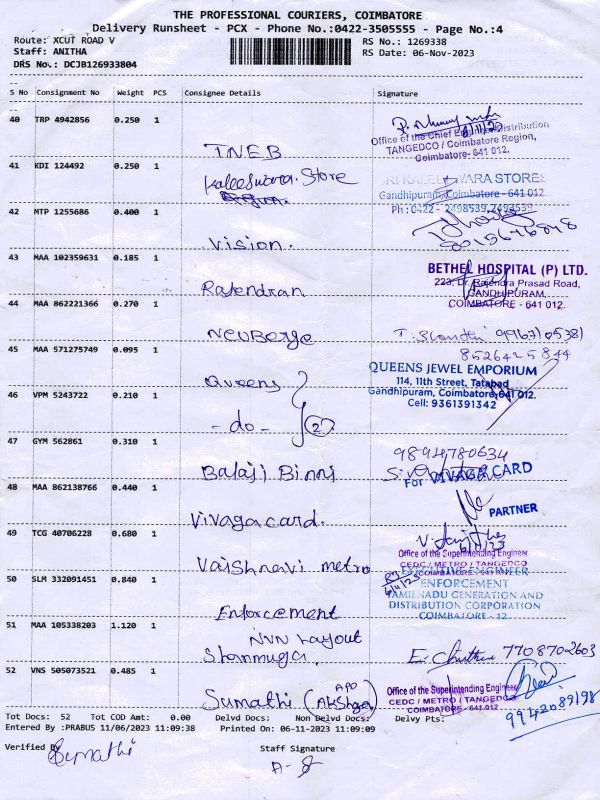 THE PROFESSIONAL COURIERS, COIMBATORE
Delivery Runsheet - PCX - Phone No.:0422-3505555 - Page No.:4
Route: XCUT ROAD V
RS No.: 1269338
Staff: ANITHA
RS Date: 06-Nov-2023
DRS No.: DCJB126933804
S No Consignment No Weight PCS Consignee Details Signature
40 TRP 4942856 0.250 1
TNEB
Office of the Chief Engineer/Distribution
TANGEDCO / Coimbatore Region,
Coimbatore- 641 012.
41 KDI 124492 0.250 1
Kaleeswara Store
SRI KALEESWARA STORES
Gandhipuram, Coimbatore - 641 012
Ph : 0422 - 2498539, 2493539
42 MTP 1255686 0.400 1
Vision.
43 MAA 102359631 0.185 1
Rajendran
BETHEL HOSPITAL (P) LTD.
223, Dr. Rajendra Prasad Road,
GANDHIPURAM,
COIMBATORE - 641 012.
44 MAA 862221366 0.270 1
Neuberge
8526425844
45 MAA 571275749 0.095 1
Queens
QUEENS JEWEL EMPORIUM
114, 11th Street, Tatabad
Gandhipuram, Coimbatore-641 012.
Cell: 9361391342
46 VPM 5243722 0.210 1
- do - 2
47 GYM 562861 0.310 1
Balaji Binny
9894780634
48 MAA 862138766 0.440 1
Vivaga card.
For VIVAGA CARD
PARTNER
49 TCG 40706228 0.680 1
Vaishnavi metro
Office of the Superintending Engineer
CEDC / METRO / TANGEDCO
COIMBATORE - 641 012
50 SLM 332091451 0.840 1
Enforcement
EXECUTIVE ENGINEER
ENFORCEMENT
TAMILNADU GENERATION AND
DISTRIBUTION CORPORATION
COIMBATORE - 12
51 MAA 105338203 1.120 1
NVN Layout
Shanmuga.
7708702603
52 VNS 505073521 0.485 1
Sumathi (Akshya) APO
Office of the Superintending Engineer
CEDC / METRO / TANGEDCO
COIMBATORE - 641 012.
9942089198
Tot Docs: 52 Tot COD Amt: 0.00 Delvd Docs: Non Delvd Docs: Delvy Pts:
Entered By :PRABUS 11/06/2023 11:09:38 Printed On: 06-11-2023 11:09:09
Verified By Sumathi
Staff Signature